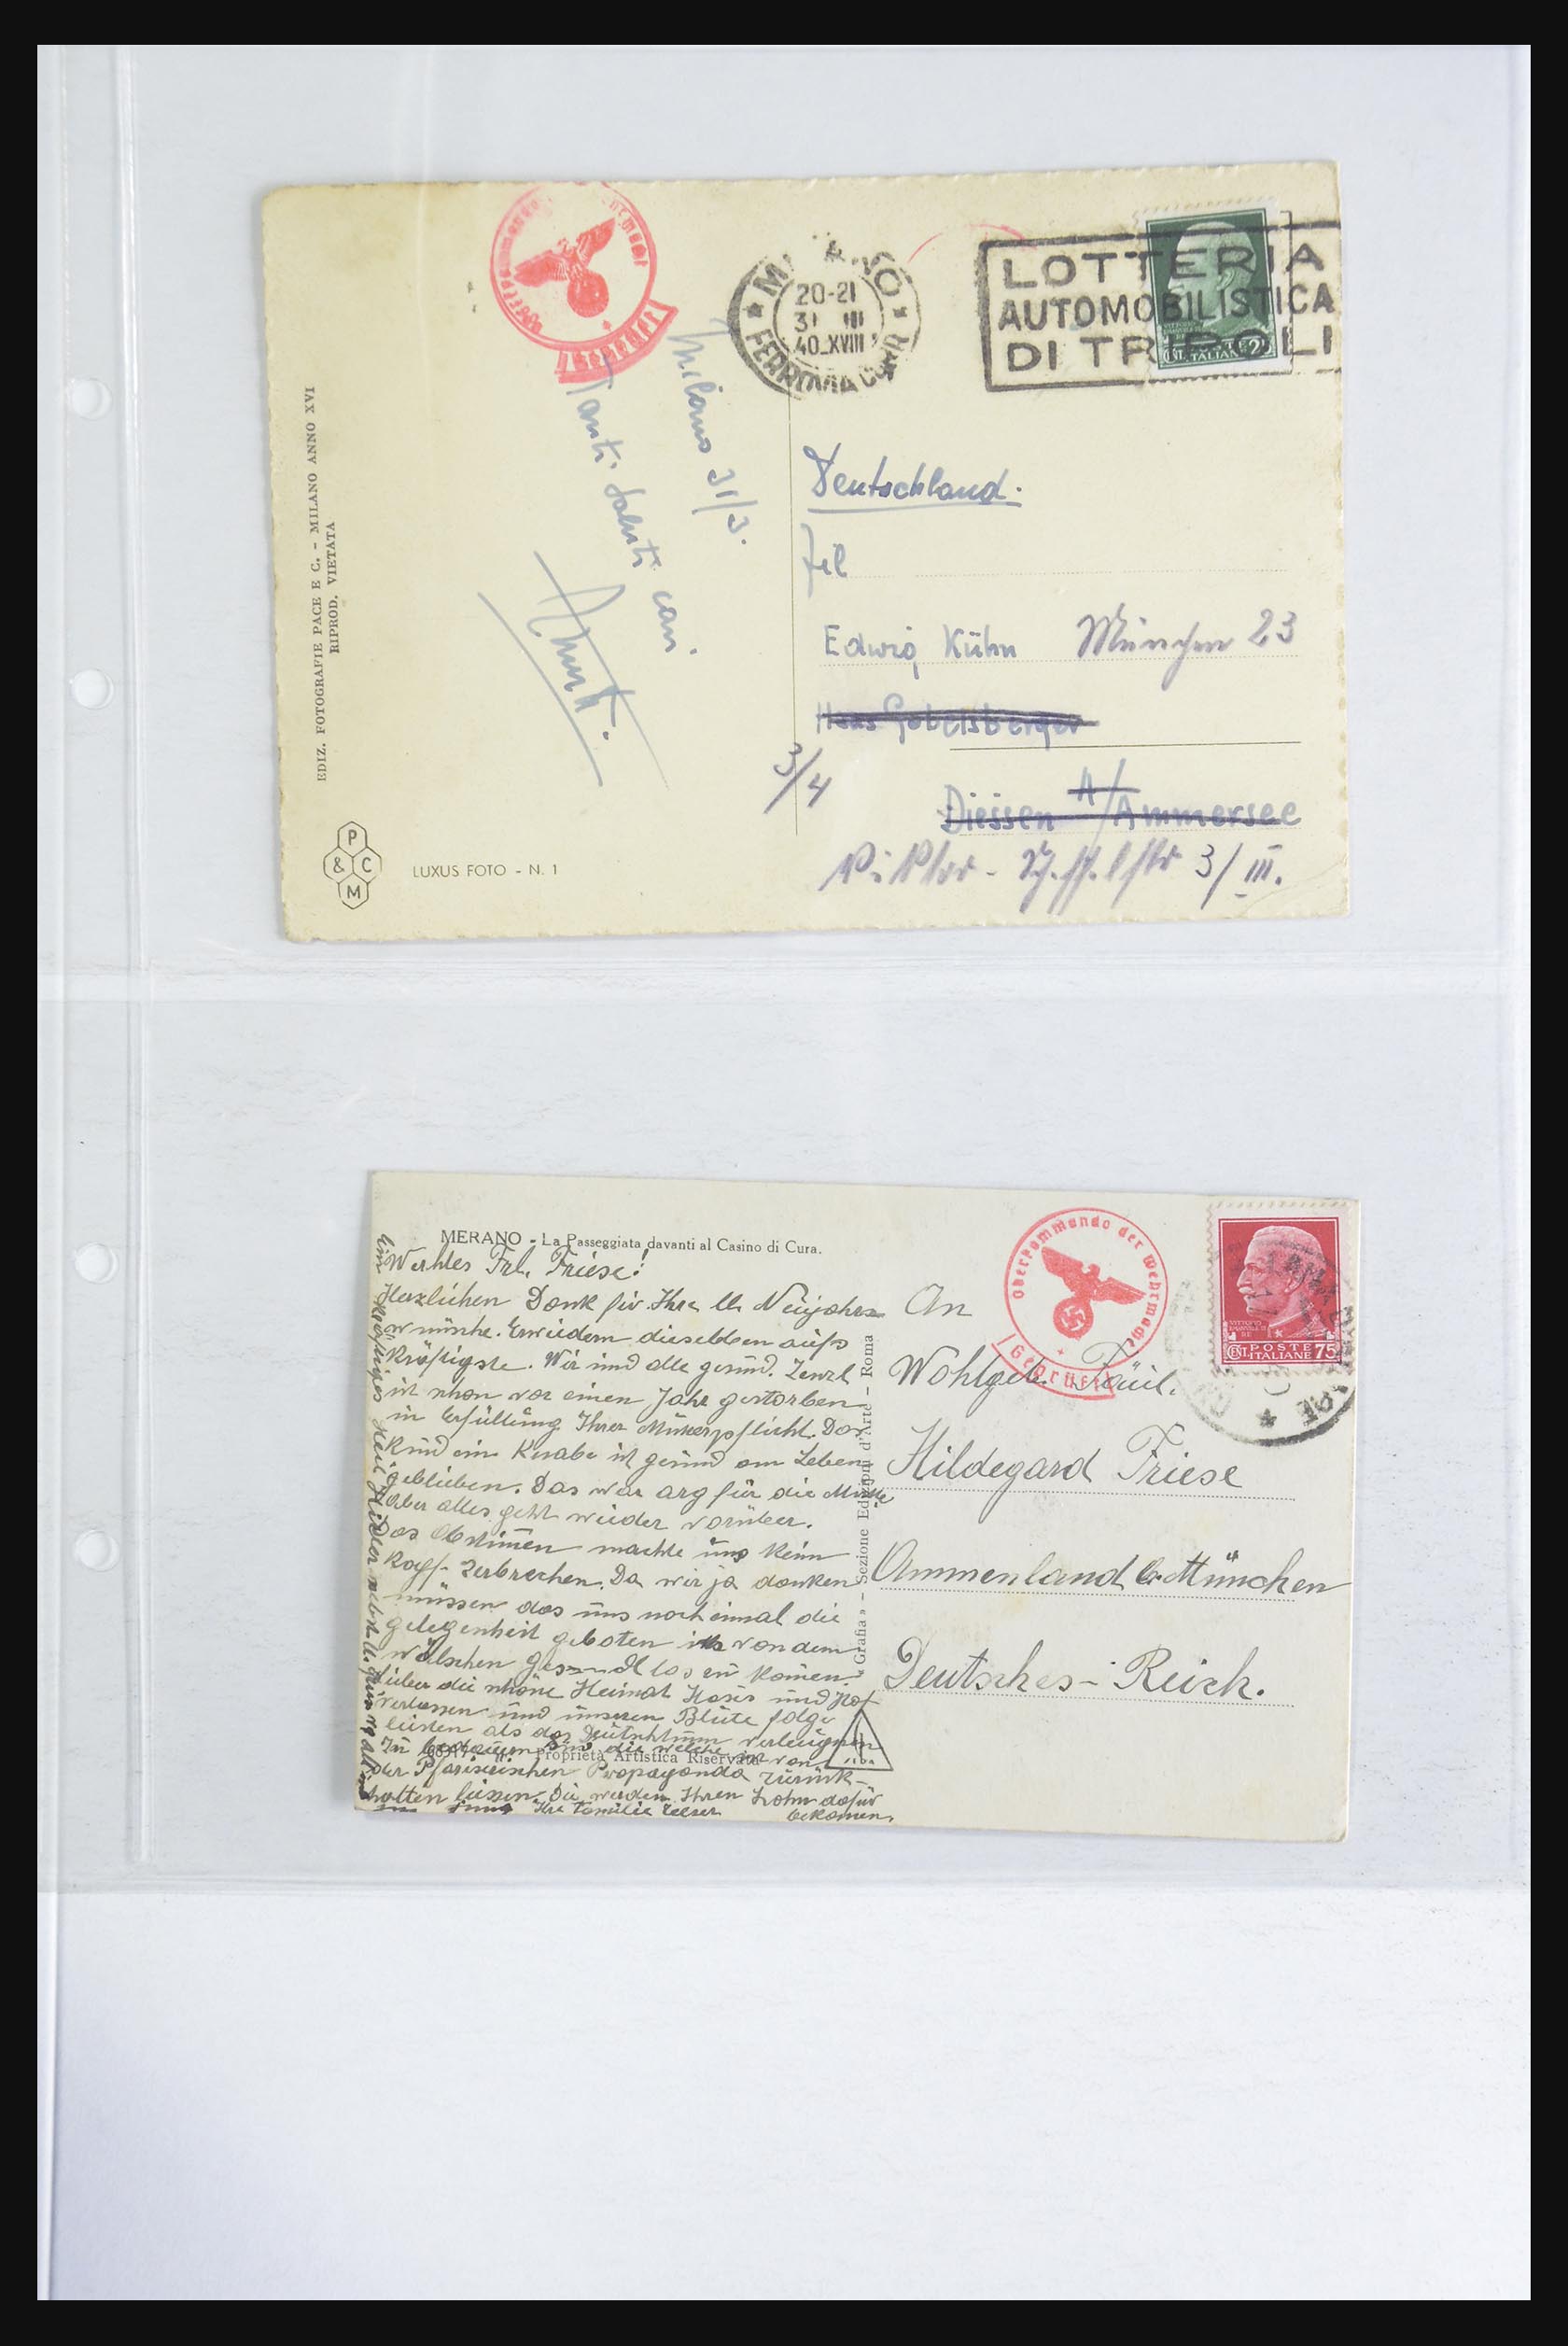 Oberkommando der Wehrmacht
Geprüft
MILANO
20-21
31 III
40.XVIII
FERROVIA CORR.
LOTTERIA
AUTOMOBILISTICA
DI TRIPOLI
Milano 31/3.
Tanti saluti cari.
Deutschland.
Edwig Kühn München 23
Hans Gobelsberger
3/4
Diessen A/Ammersee
Viktor-Scheffelstr 3/III.
EDIZ. FOTOGRAFIE PACE E C. - MILANO ANNO XVI
RIPROD. VIETATA
P & C M
LUXUS FOTO - N. 1
MERANO - La Passeggiata davanti al Casino di Cura.
Werhtes Frl. Friese!
Herzlichen Dank für Ihre lb Neujahrs
wünshe. Erwiedern dieselben aufs
Kräftigste. Wir sind alle gesund. Zenzl
ist schon vor einen Jahr gestorben
in Erfüllung Ihrer Mutterpflicht. Das
Kind ein Knabe ist gesund am Leben
geblieben. Das war arg für die Mutter
Aber alles geht wieder vorüber.
Das Abstimen machte uns kein
Kopf-zerbrechen. Da wir ja danken
müssen das uns noch einmal die
gelegenheit geboten ist von dem
wälschen los zu komen.
Lieber die schöne Heimat Haus und Hof
verlassen und unseren Blute folge
leisten als das Deutschtum verleugnen
Zu bedauern sind die welche sich von
der Pfarrerischen Propaganda zurück-
halten liessen. Die werden Ihren Lohn dafür
bekomen.
Ihre Familie
Ein kräftiges Heil Hitler nebst
Proprietà Artistica Riservata
Grafia - Sezione Edizioni d'Arte - Roma
Oberkommando der Wehrmacht
Geprüft
POSTE
ITALIANE
CENT. 75
An
Wohlgeb. Fräul.
Hildegard Friese
Ammenland b. München
Deutsches-Reich.